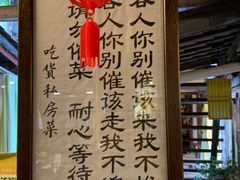 客人你别催该来我不
客人你别催该走我不
请勿催菜 耐心等待
吃货私房菜